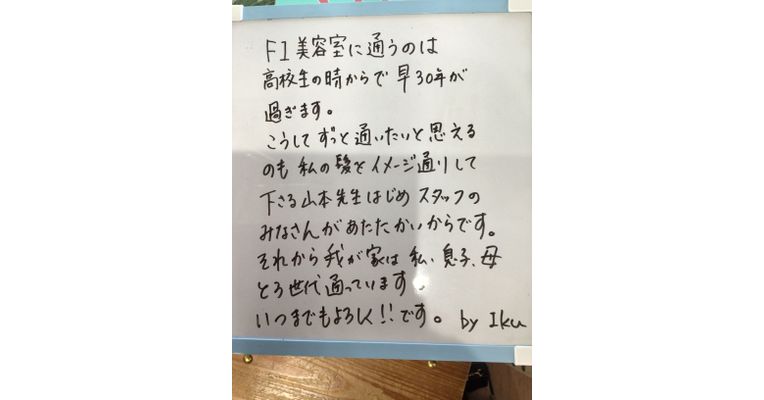 F1美容室に通うのは
高校生の時からで早30年が
過ぎます。
こうしてずっと通いたいと思える
のも私の髪をイメージ通りして
下さる山本先生はじめスタッフの
みなさんがあたたかいからです。
それから我が家は私、息子、母
と3世代通っています。
いつまでもよろしく!!です。 by Iku